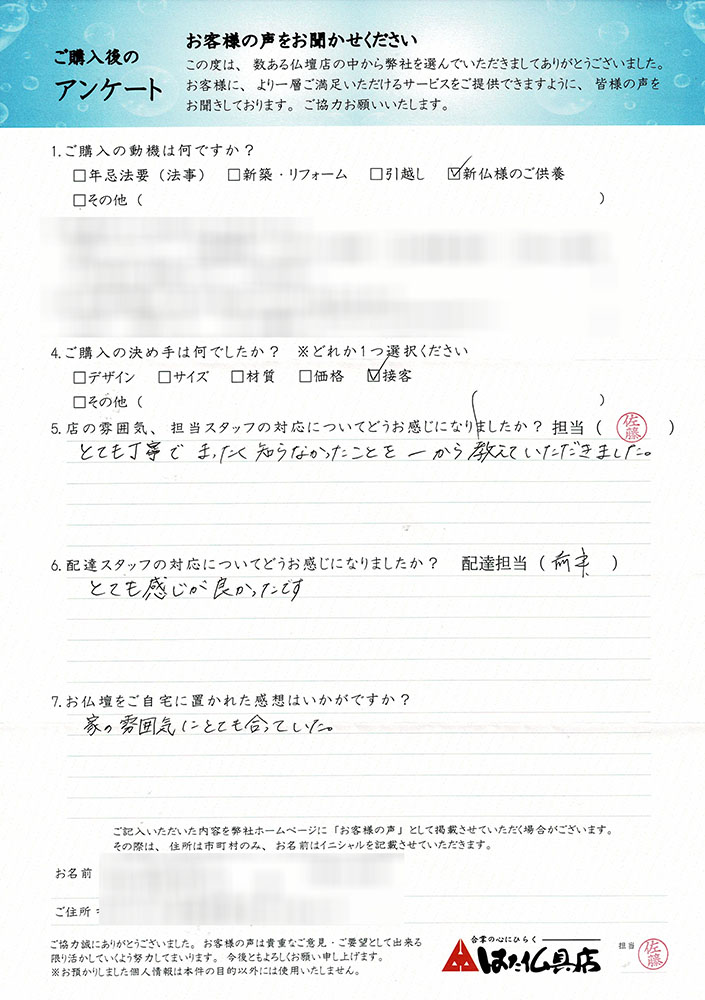 ご購入後の
アンケート
お客様の声をお聞かせください
この度は、数ある仏壇店の中から弊社を選んでいただきましてありがとうございました。
お客様に、より一層ご満足いただけるサービスをご提供できますように、皆様の声を
お聞きしております。ご協力お願いいたします。
1.ご購入の動機は何ですか？
□年忌法要（法事） □新築・リフォーム □引越し ☑新仏様のご供養
□その他（ ）
4.ご購入の決め手は何でしたか？ ※どれか1つ選択ください
□デザイン □サイズ □材質 □価格 ☑接客
□その他（ ）
5.店の雰囲気、担当スタッフの対応についてどうお感じになりましたか？ 担当（ 佐藤 ）
とても丁寧で まったく知らなかったことを一から教えていただきました。
6.配達スタッフの対応についてどうお感じになりましたか？ 配達担当（ ）
とても感じが良かったです
7.お仏壇をご自宅に置かれた感想はいかがですか？
家の雰囲気にとても合っていた。
ご記入いただいた内容を弊社ホームページに「お客様の声」として掲載させていただく場合がございます。
その際は、住所は市町村のみ、お名前はイニシャルを記載させていただきます。
お名前
ご住所
ご協力誠にありがとうございました。お客様の声は貴重なご意見・ご要望として出来る
限り活かしていくよう努力してまいります。今後ともよろしくお願い申し上げます。
※お預かりしました個人情報は本件の目的以外には使用いたしません。
合掌の心にひらく
はた仏具店
担当 佐藤